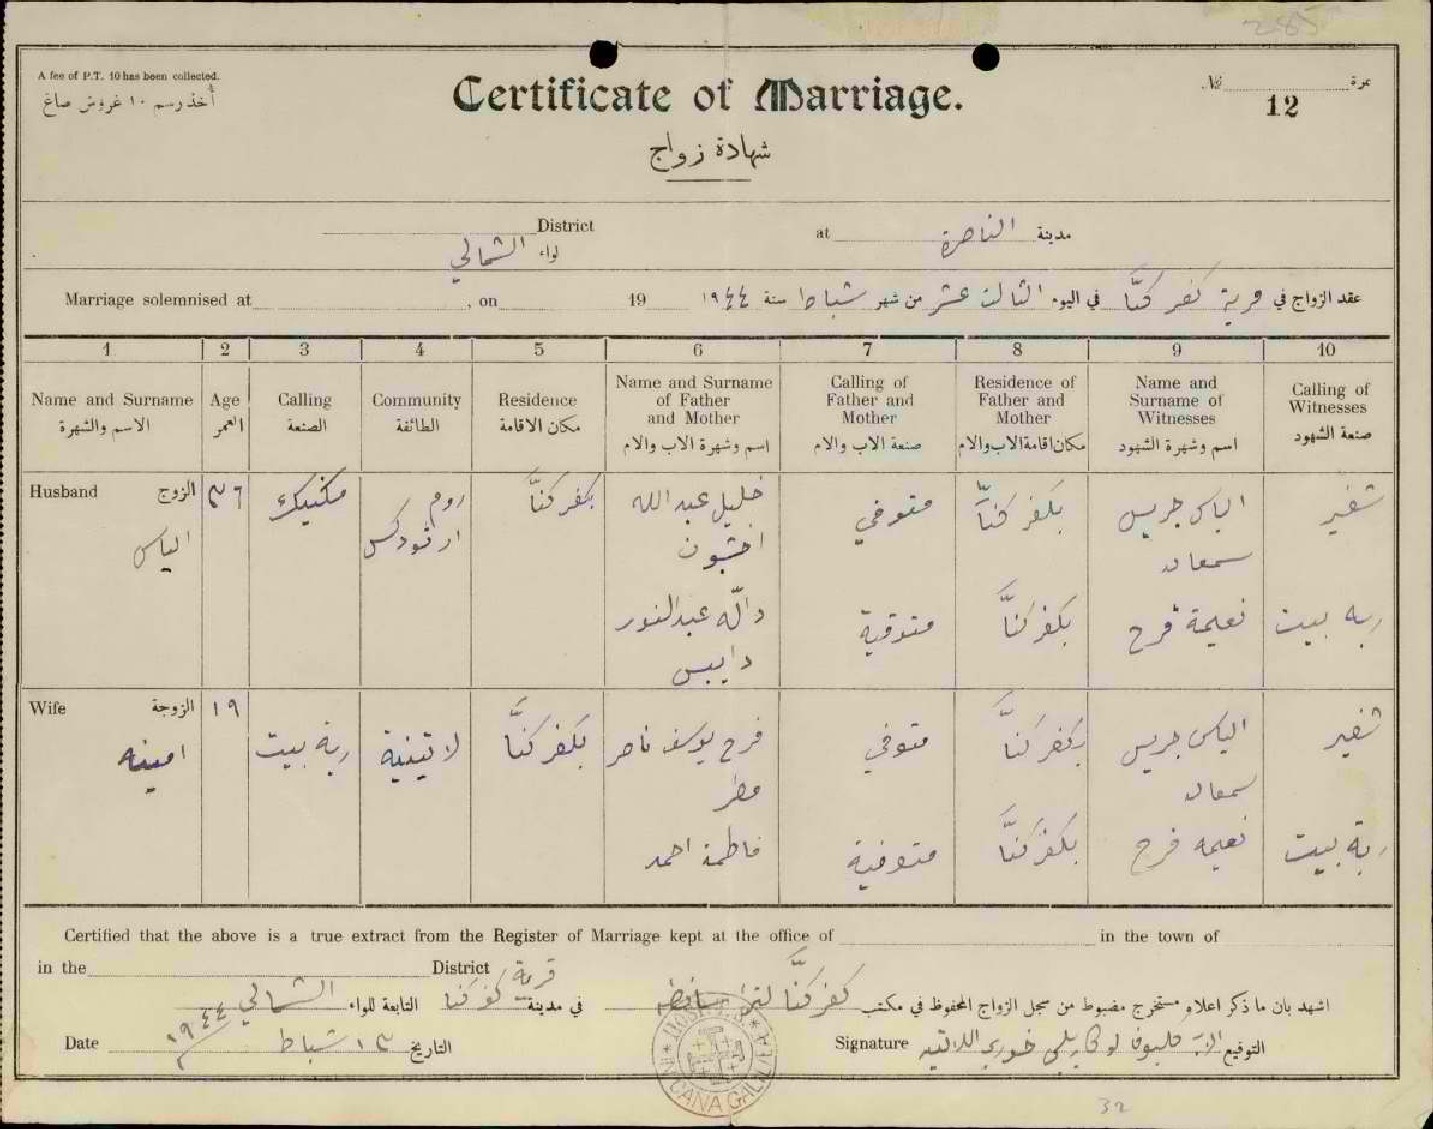 285
A fee of P.T. 10 has been collected.
أخذ رسم ١٠ غروش صاغ
Certificate of Marriage.
شهادة زواج
№ نمرة
12
District
لواء الشمالي
at مدينة الناصرة
Marriage solemnised at , on 19
عقد الزواج في قرية كفر كنَّا في اليوم الثالث عشر من شهر شباط سنة ١٩٤٤
1 2 3 4 5 6 7 8 9 10
Name and Surname الاسم والشهرة
Age العمر
Calling الصنعة
Community الطائفة
Residence مكان الاقامة
Name and Surname of Father and Mother اسم وشهرة الاب والام
Calling of Father and Mother صنعة الاب والام
Residence of Father and Mother مكان اقامة الاب والام
Name and Surname of Witnesses اسم وشهرة الشهود
Calling of Witnesses صنعة الشهود
Husband الزوج
الياس
٣٦
مكنيك
روم
ارثودكس
بكفر كنَّا
خليل عبد الله
متوفي
بكفر كنَّا
الياس جريس
سمعان
عبد النور
متوفية
بكفر كنَّا
نعيمة فرح
ربه بيت
Wife الزوجة
امينه
١٩
ربة بيت
لاتينية
بكفر كنَّا
فرح يوسف ناصر
مطر
متوفي
بكفر كنَّا
الياس جريس
سمعان
فاطمة احمد
متوفية
بكفر كنَّا
نعيمه فرح
ربة بيت
Certified that the above is a true extract from the Register of Marriage kept at the office of in the town of
in the District
اشهد بان ما ذكر اعلاه مستخرج مضبوط من سجل الزواج المحفوظ في مكتب كفر كنَّا في مدينة قرية كفر كنا التابعة للواء الشمالي
Date التاريخ ١٣ شباط ١٩٤٤
Signature التوقيع
CANA GALILAEA
32